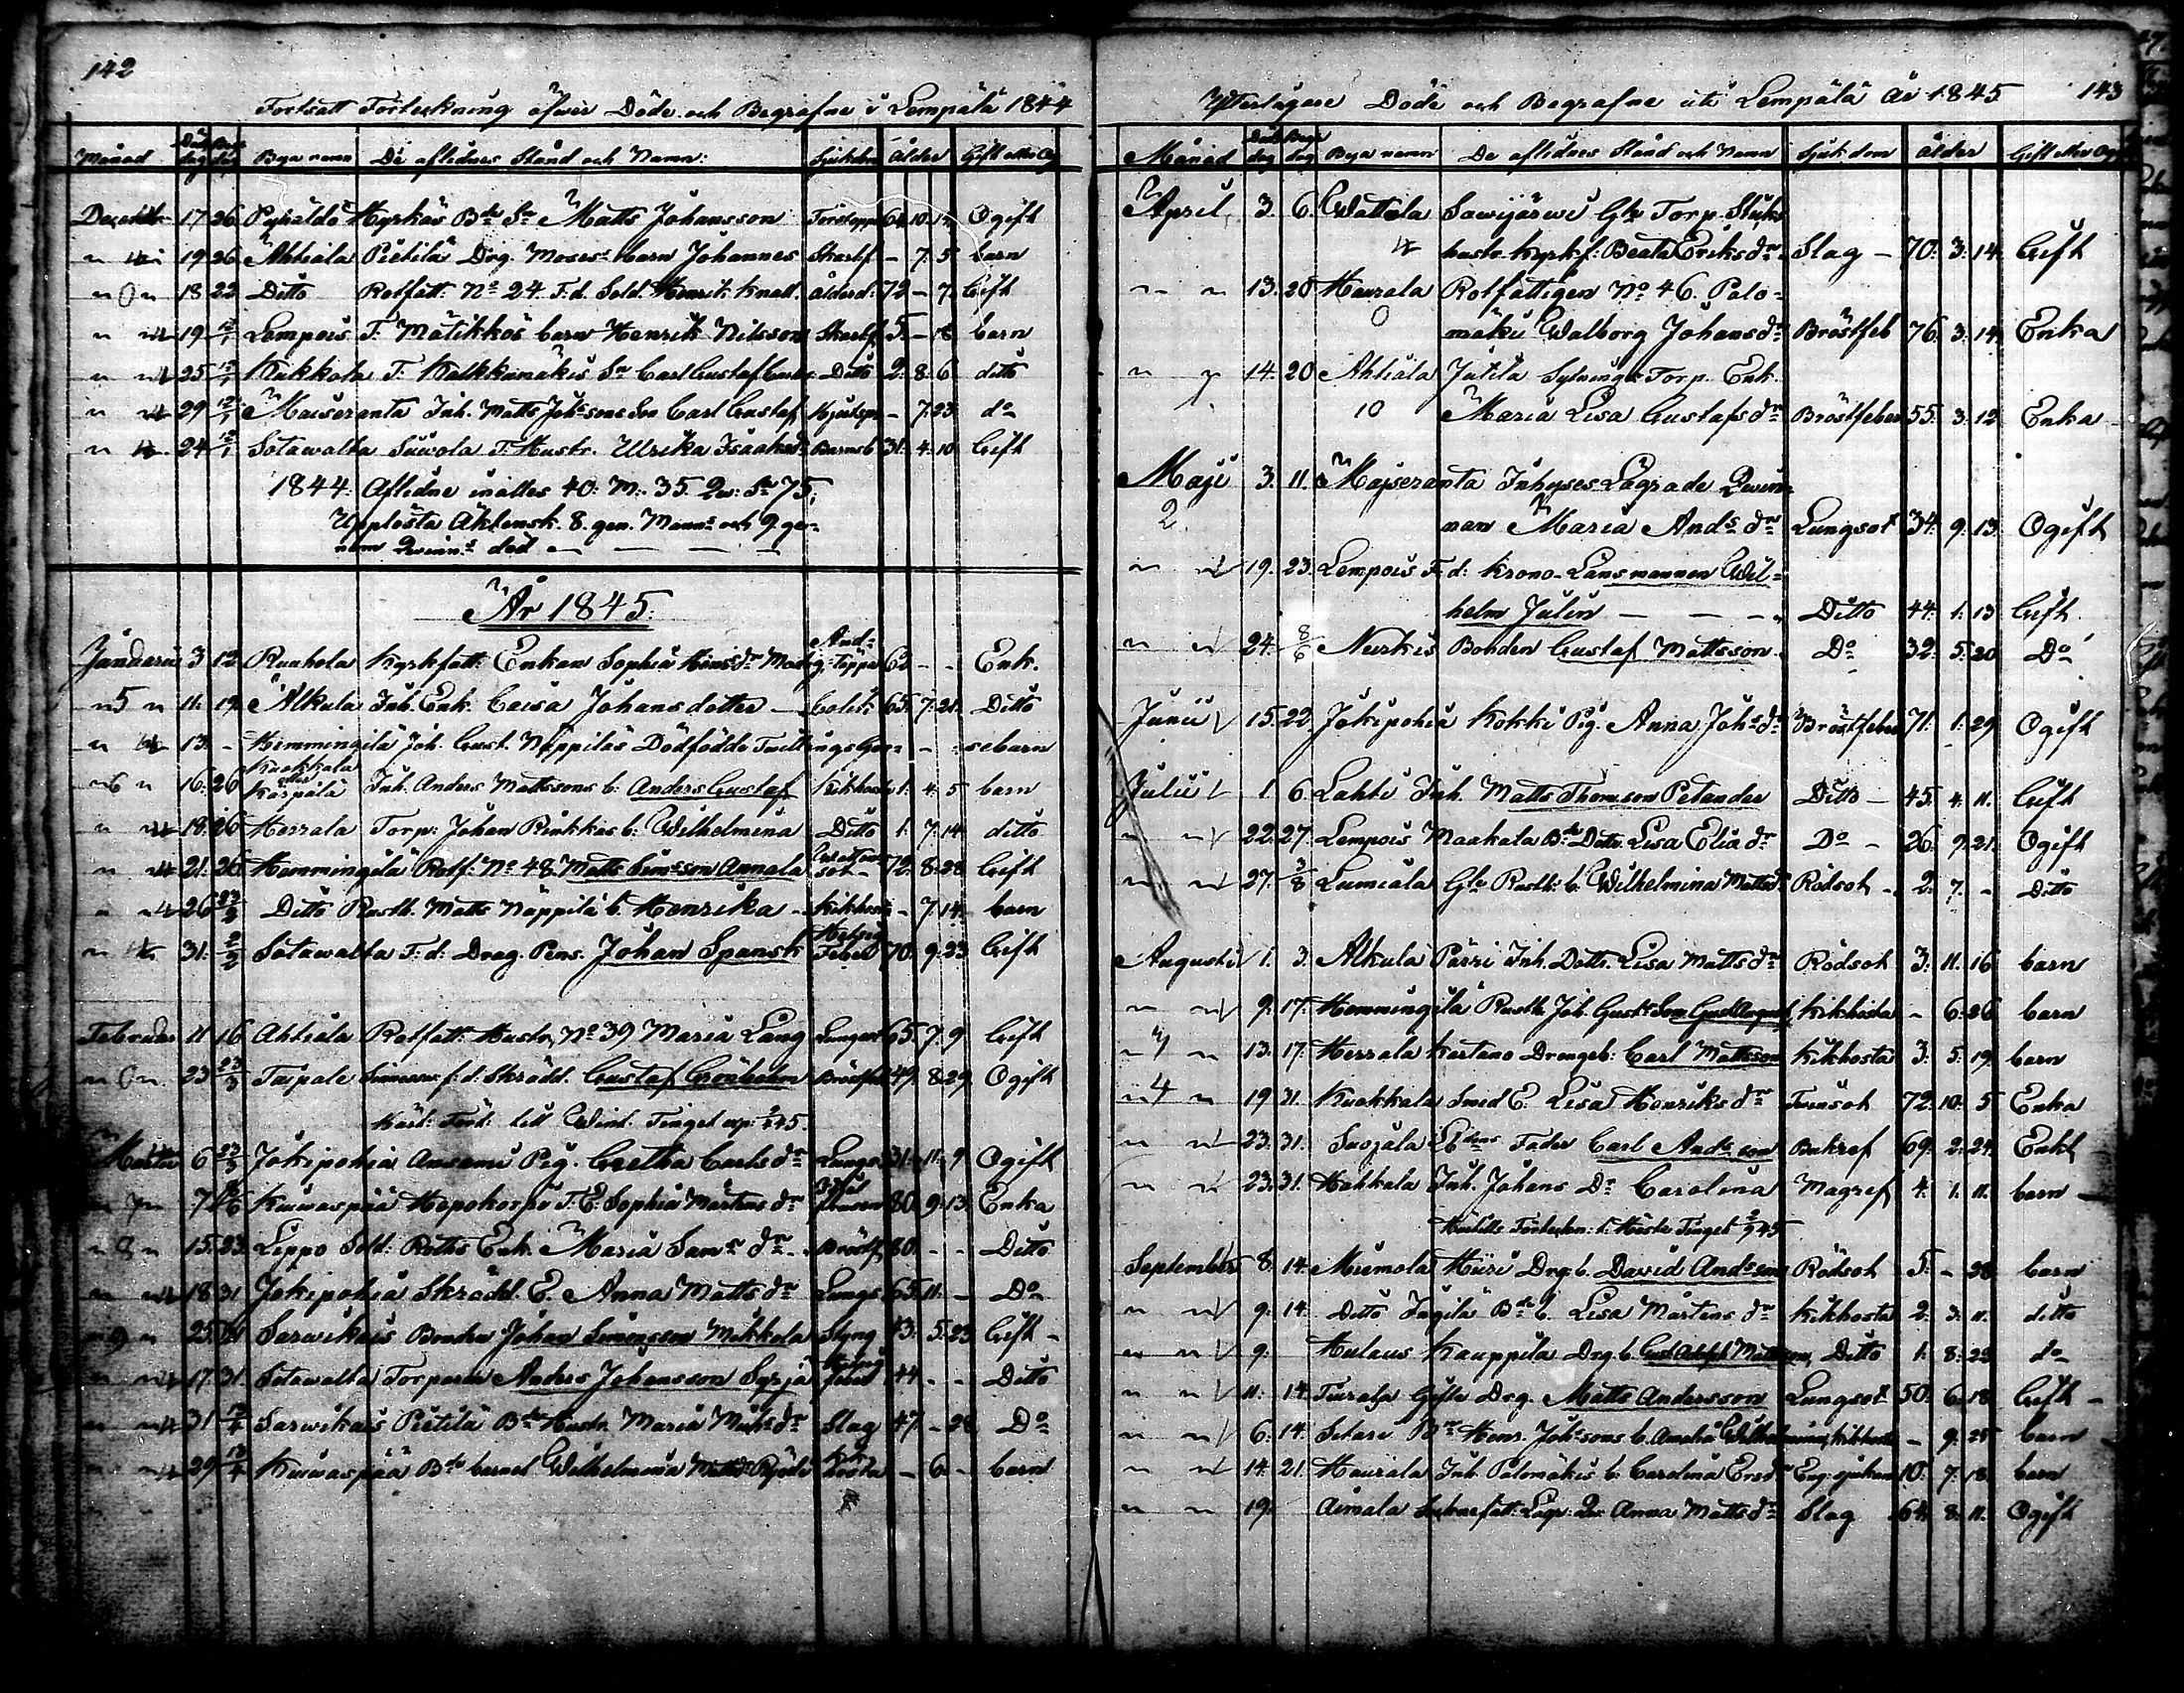 142
Fortsatt Förteckning öfwer Döde och Begrafne i Lempälä 1844
Månad Död dag Begr dag Bya namn De aflidnes Stånd och Namn: Sjukdom Ålder Gift eller Og
Decembr 17 26 Hyrkäs Bde Sn Matts Johansson 64 10 Ogift
" " 19 26 Ahtiala Pietilä Drg. Moses barn Johannes Skarlf - 7. 5 barn
" 0 " 18 22 Ditto Rotfatt: No 24 F.d. Sold. Henrik Knall. ålderd: 72 - 7. Gift
" " 19 12/1 Lempois T. Mätikkös barn Henrik Nilsson Skarlf 5. - 18 barn
" " 25 12/1 Kukkola T. Kalkkamäkis Sn Carl Gustaf Ditto 2. 8. 6 ditto
" " 29 12/1 Maiseranta Inh. Matts Johssons Son Carl Gustaf - 7. 23. do
" " 24 12/1 Sotawalta Suwola T. Hustr. Ulrika Isaaksdr Barnsb 31. 4. 10 Gift
1844. Aflidne inalles 40: M: 35. Qw: Sa 75.
Upplösta Äktensk. 8. gen. Manns och 9. ge-
nom Qwinns död — — — —
År 1845.
Januarii 3 12 Ruuhola Kyrkfatt: Enkan Sophia Hinsdr 62 - - Enk.
" 5 " 11. 19. Alkula Inh. Enk. Caisa Johansdotter — Colik 65. 7. 21. Ditto
" " 13. - Hemmingilä Joh. Gust. Näppiläs Dödfödde Twillings - - sebarn
" 6 " 16. 26 Kuokkala eller Karpala Inh. Anders Mattssons b: Anders Gustaf Kikhosta 1. 4. 5 barn
" " 18. 26 Herrala Torp: Johan Rinkkas b: Wilhelmina Ditto 1. 7. 14. ditto
" " 21. 26 Hemmingilä Rotf: No 48. Matts Simsson Annala Wattusot 72. 8. 28 Gift
" " 26 Ditto Rusth. Matts Näppilä b. Henrika - Kikhosta - 7. 14. barn
" " 31. 2/2 Sotawalta F: d: Drag. Pens. Johan Spansk Feber 70. 9. 23 Gift
Februar 11 16 Ahtiala Rotfatt: Hustr. No 39 Maria Lang Lungsot 65. 7. 9 Gift
" 0 " 23 23/3 Taipale f: d: Skrädd. Gustaf Grönholm Bröstfeb 49. 8. 29. Ogift
till Wint. Tinget 45.
Martii 6 23/3 Jokipohia Ansami Pig. Gretha Carlsdr Lungs 31. 11. 9 Ogift
" 7 " 7 Kuiwaspää Hepokorpi T. E. Sophia Mårtensdr 80. 9. 13. Enka
" 8 " 15. 23. Lippo Sold: Rotts Enk. Maria Samsdr - Bröstf 80. - - Ditto
" " 18 31 Jokipohia Skrädd. E. Anna Mattsdr Lungs 65. 11. - Do
" 9 " 25. Sarwikais Bonden Johan Simonsson Mikkola Styng 43. 5. 23 Gift -
" " 17. 31. Sotawalta Torparen Anders Johansson Syrjä feber 44 - - Ditto
" " 31 13/4 Sarwikais Pietilä Bde Hustr. Maria Michsdr Slag 47. - 28 Do
" " 29 13/4 Kuiwaspää Bde barnet Wilhelmina Kikhosta - 6. - barn
Ytterlägare Döde och Begrafne uti Lempälä år 1845 143
Månad Död dag Begr dag Bya namn De aflidnes Stånd och Namn Sjukdom ålder Gift eller Og
April, 3. 6. Wattola Sawijärwi Gle Torp.
hustr. Kyrkf: Beata Eriksdr Slag - 70: 3: 14. Gift
" " 13. 20 Haurala Rotfattigen No 46. Palo-
0 mäki Walborg Johansdr Bröstfeb 76. 3. 14. Enka
" " 14. 20 Ahtiala Jutila Sytnings Torp. Enk.
10 Maria Lisa Gustafsdr Bröstfeber 55. 3. 12 Enka
Maji 3. 11. Majseranta Inhyses Lägrade Qwin-
2. nan Maria Andsdr Lungsot 34. 9. 13. Ogift
" " 19. 23. Lempois F. d: Krono-Länsmannen Wil-
helm Julin — — — Ditto 44. 1. 13 Gift
" " 24. 8/6 Nurkis Bonden Gustaf Mattsson. Do 32. 5. 20 Do
Junii 15. 22. Jokipohia Kokki Pig. Anna Johsdr Bröstfeber 71. 1. 29 Ogift
Julii 1 6. Lahti Inh. Matts Thomson Petander Ditto - 45. 4. 11. Gift
" " 22. 27. Lempois Maakala Bde Dottr. Lisa Eliadr Do - 26. 9. 21. Ogift
" " 27. 3/8 Lumiala Gle Rusth: b. Wilhelmina Mattsdr Rödsot - 2. 7. - Ditto
Augusti 1. 3. Alkula Pärri Inh. Dottr. Lisa Mattsdr Rödsot 3. 11. 16 barn
" " 9. 17. Hemmingilä Rusth. Joh. Gusts Son Gust August Kikhosta - 6. 26 barn
" " 13. 17. Herrala Kartano Drengsb: Carl Mattsson Kikhosta 3. 5. 19. barn
" 4 " 19 31. Kuokkala Smed E. Lisa Henriksdr Twinsot 72. 10. 5 Enka
" " 23. 31. Suojala Fader Carl Andsson Bukref 69. 2. 24. Enkl
" " 23. 31. Hahkala Inh. Johans Dr Carolina Magref 4. 1. 11. barn —
Förteckn: t. Höste Tinget 45
September 8. 14. Miemola Hiiri Drg b. David Andsson Rödsot 5. - 28. barn
" " 9. 14. Ditto Ingilä Bde b. Lisa Mårtensdr Kikhosta 2. 3. 11. ditto
" " 9. Hulaus Kauppila Drg b. Gust Adolph Mattsson, Ditto 1. 8. 22 do
" " 11. 14. Turala Gifte Drg. Matts Andersson Lungsot 50. 6. 18. Gift -
" " 6. 14. Henr. Johssons b. Amalia Wilhelmina, Kikhosta - 9. 25 barn
" " 14. 21. Haurala Inh. Palomäkis b. Carolina Ersdr Eng. sjukan 10. 7. 18. barn
" " 19. Aimala Soknefatt: Lägr: Qw. Anna Mattsdr Slag 64. 8. 11. Ogift